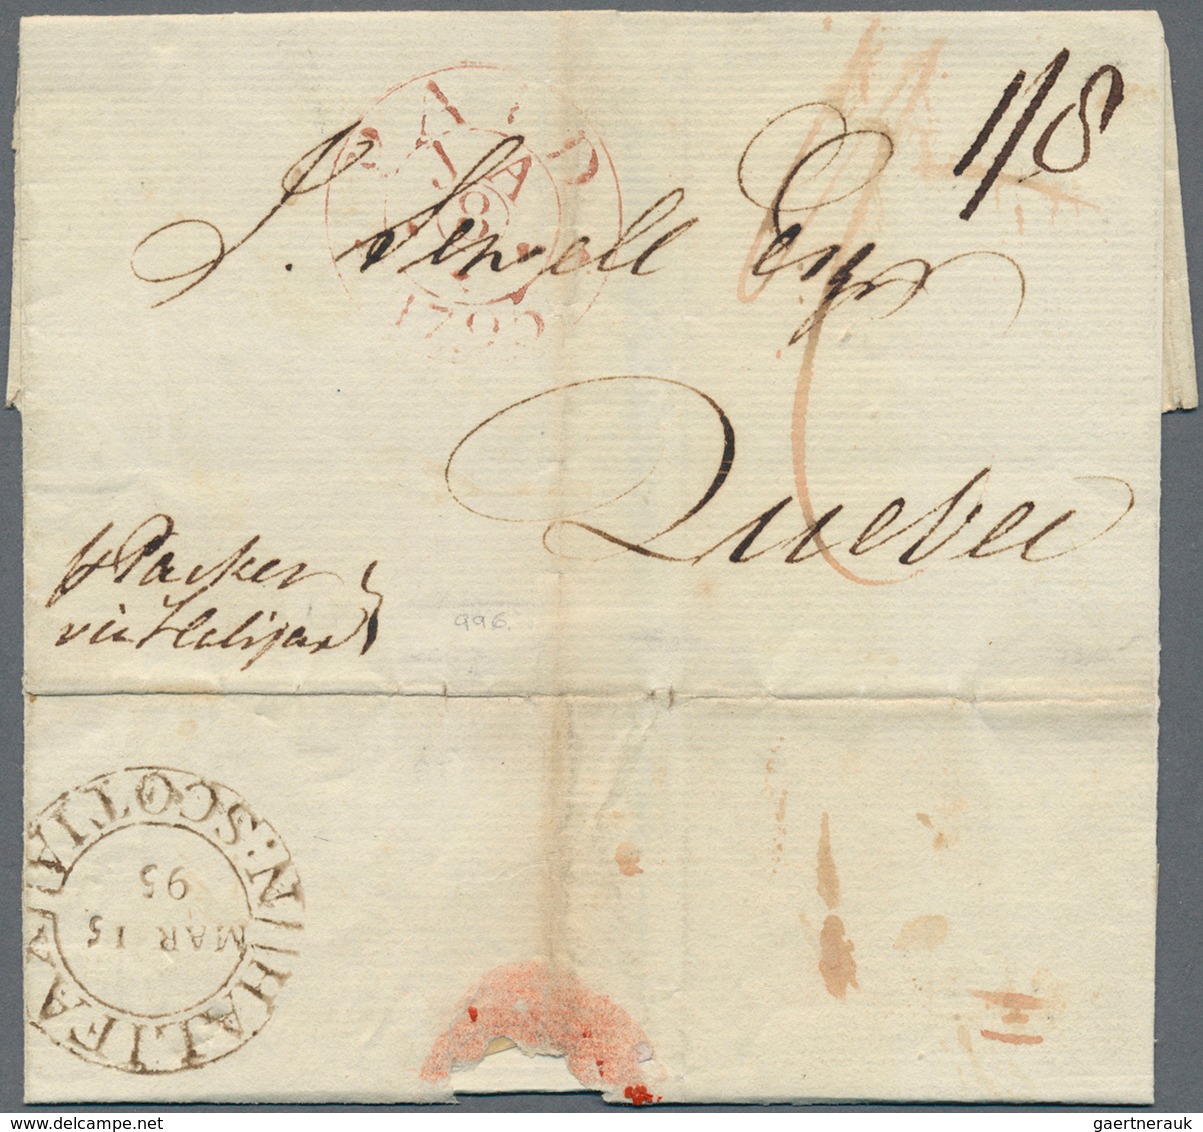 1/8
PAID
JA
8
1795
J. Sewell Esqr
Quebec
pr Packet
via Halifax
996.
HALIFAX N:SCOTIA
MAR 15
95
gaertnerauk / delcampe.net